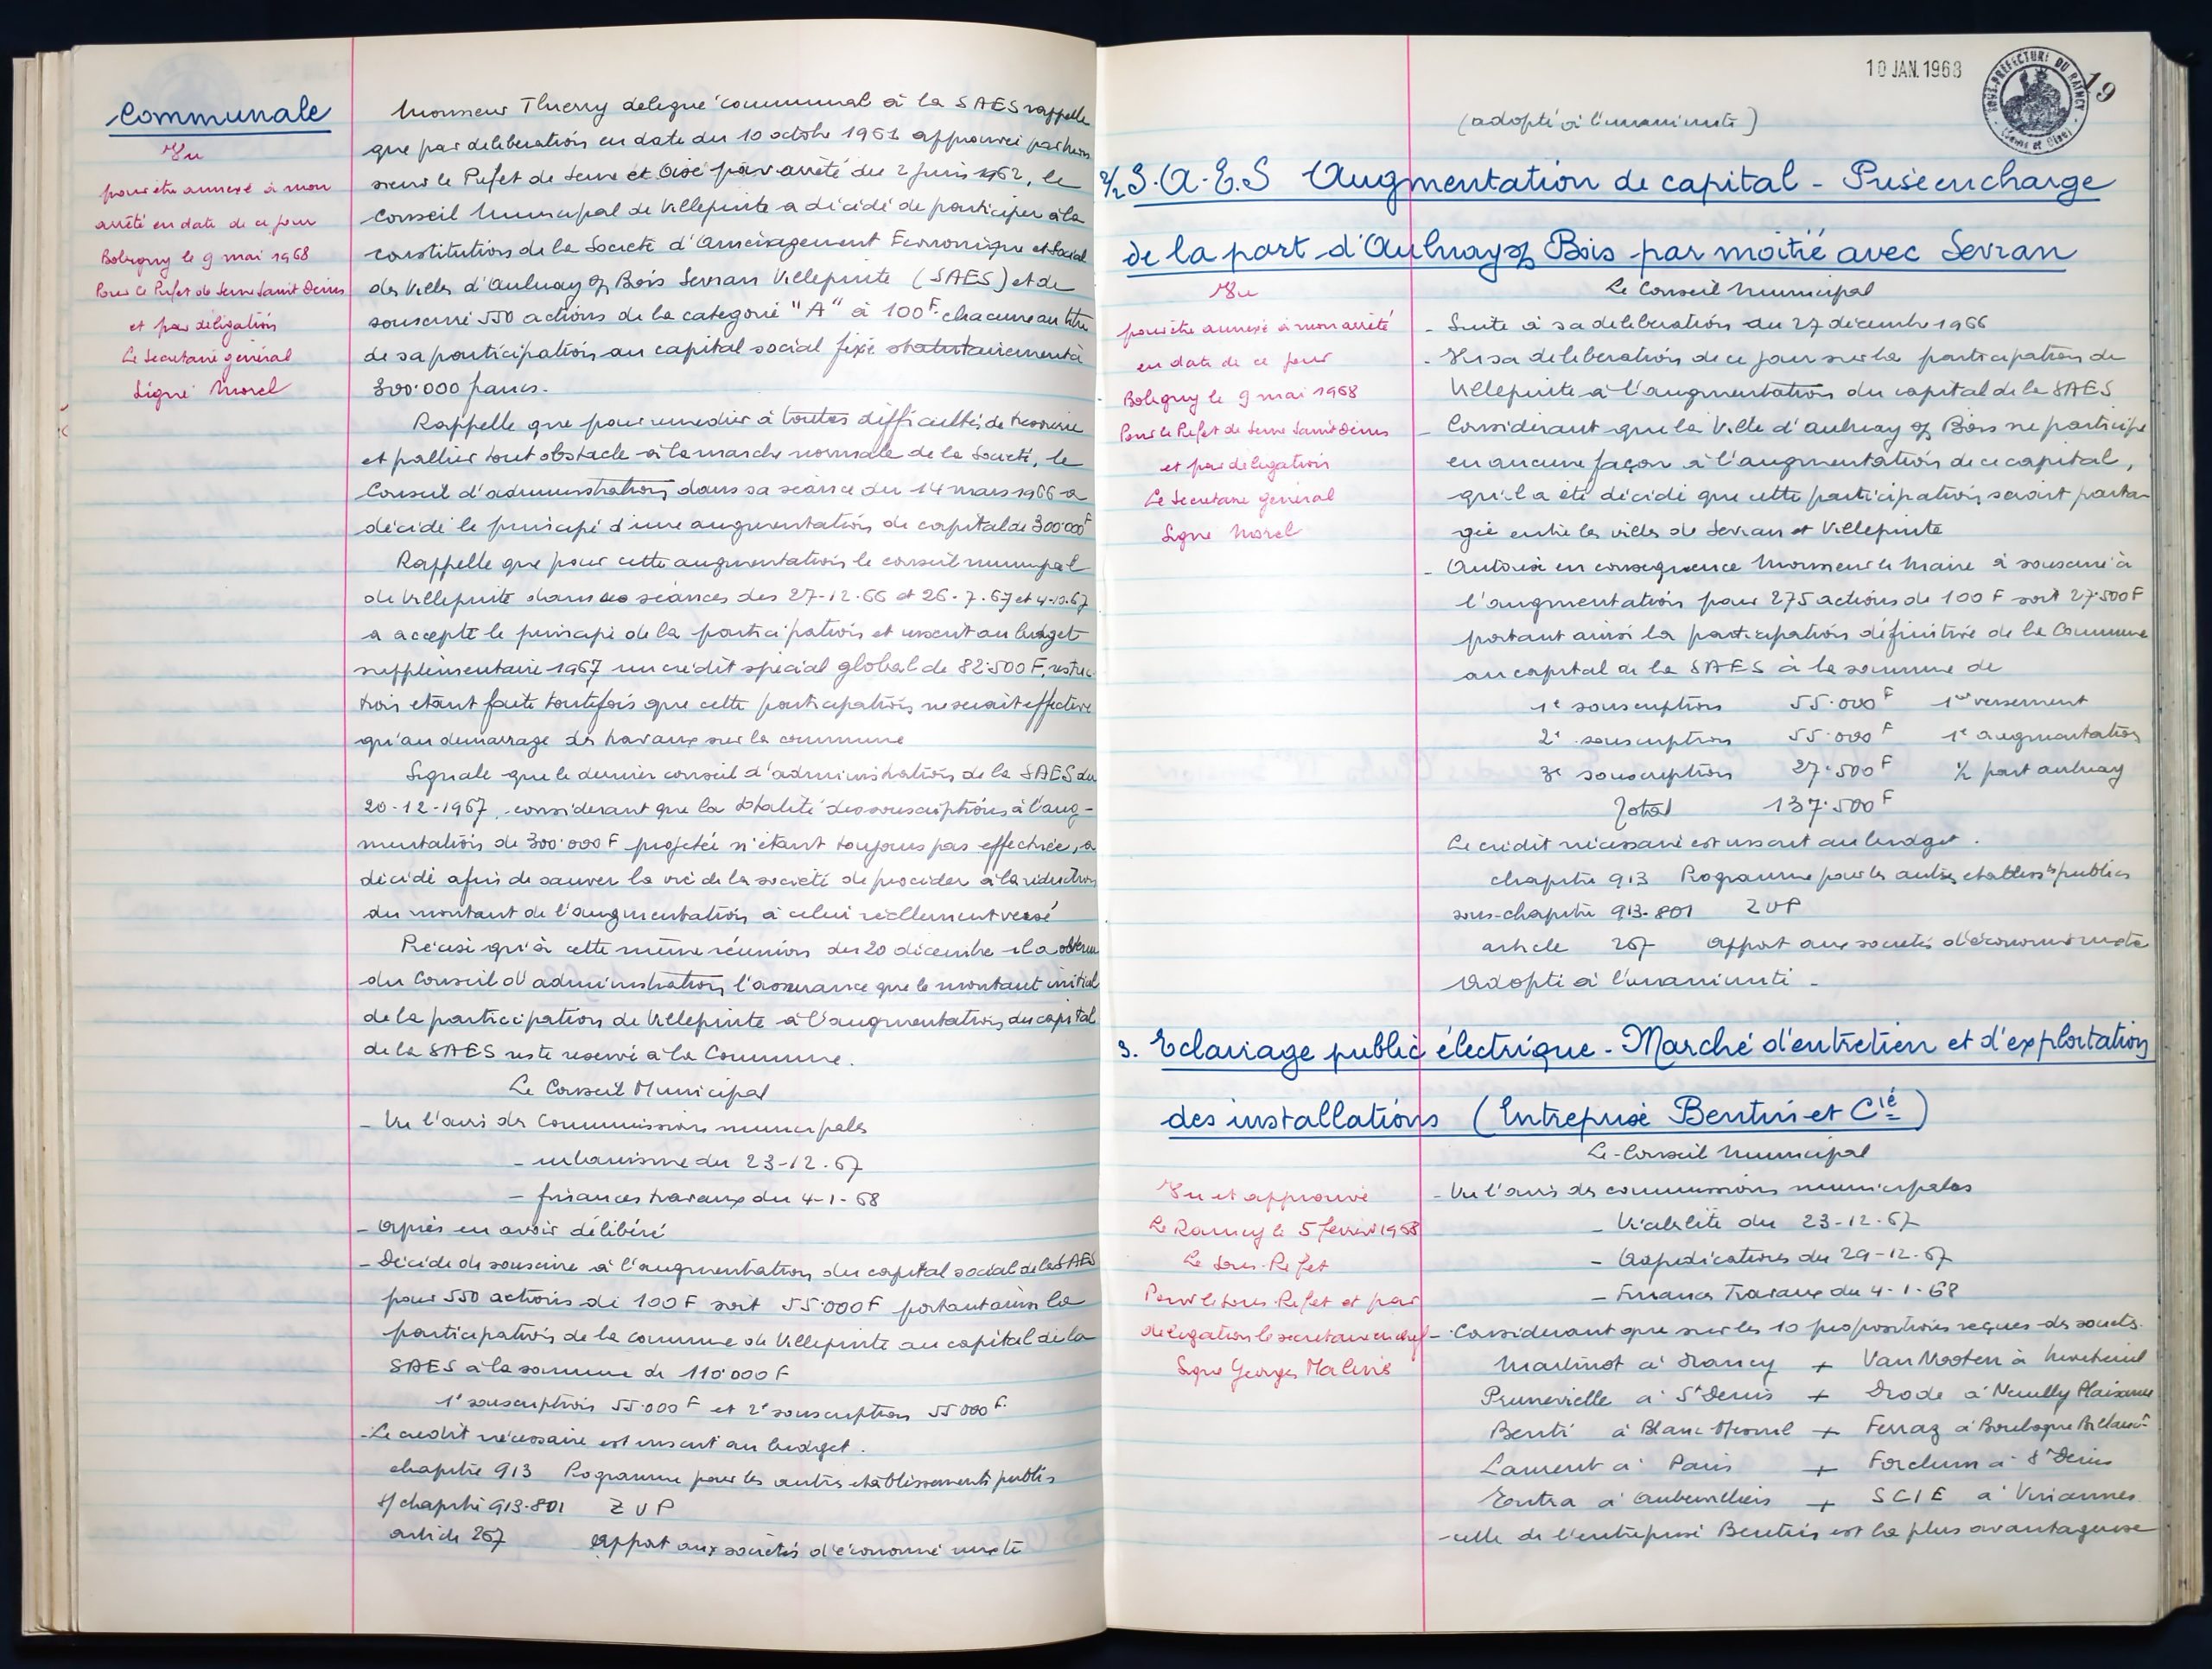 Communale
Vu
pour être annexé à mon
arrêté en date de ce jour
Bobigny le 9 mai 1968
Pour le Préfet de Seine Saint Denis
et par délégation
Le Secrétaire général
Signé Morel
Monsieur Thierry délégué communal à la SAES rappelle
que par délibération en date du 10 octobre 1961 approuvée par Mon
sieur le Préfet de Seine et Oise par arrêté du 2 juin 1962, le
Conseil Municipal de Villepinte a décidé de participer à la
constitution de la Société d'Aménagement Economique et Social
des Villes d'Aulnay s/ Bois Sevran Villepinte (SAES) et de
souscrire 550 actions de la catégorie "A" à 100F. chacune au titre
de sa participation au capital social fixé statutairement à
300.000 francs.
Rappelle que pour remédier à toutes difficultés de trésorerie
et pallier tout obstacle à la marche normale de la Société, le
Conseil d'administration dans sa séance du 14 mars 1966 a
décidé le principe d'une augmentation de capital de 300.000F
Rappelle que pour cette augmentation le conseil municipal
de Villepinte dans ses séances des 27-12.66 et 26.7.67 et 4-10.67
a accepté le principe de la participation et inscrit au budget
supplémentaire 1967 un crédit spécial global de 82.500 F, restric
tion étant faite toutefois que cette participation ne serait effective
qu'au démarrage des travaux sur la commune
Signale que le dernier conseil d'administration de la SAES du
20-12-1967, considérant que la totalité des souscriptions à l'aug-
mentation de 300.000 F projetée n'étant toujours pas effectuée, a
décidé afin de sauver la vie de la société de procéder à la réduction
du montant de l'augmentation à celui réellement versé
Précise qu'à cette même réunion du 20 décembre il a obtenu
du Conseil d'administration l'assurance que le montant initial
de la participation de Villepinte à l'augmentation du capital
de la SAES reste réservé à la Commune.
Le Conseil Municipal
- Vu l'avis des Commissions municipales
- urbanisme du 23-12.67
- finances travaux du 4-1-68
- Après en avoir délibéré
- Décide de souscrire à l'augmentation du capital social de la SAES
pour 550 actions de 100 F soit 55.000 F portant ainsi la
participation de la commune de Villepinte au capital de la
SAES à la somme de 110.000 F
1e souscription 55.000 F et 2e souscription 55.000 F.
- Le crédit nécessaire est inscrit au budget.
chapitre 913 Programme pour les autres établissements publics
s/chapitre 913-801 ZUP
article 267 Apport aux sociétés d'économie mixte
10 JAN. 1968
SOUS-PREFECTURE DU RAINCY
(Seine et Oise)
19
(adopté à l'unanimité)
2/2 S.A.E.S Augmentation de capital - Prise en charge
de la part d'Aulnay s/ Bois par moitié avec Sevran
Vu
pour être annexé à mon arrêté
en date de ce jour
Bobigny le 9 mai 1968
Pour le Préfet de Seine Saint Denis
et par délégation
Le Secrétaire général
Signé Morel
Le Conseil Municipal
- Suite à sa délibération du 27 décembre 1966
- Vu sa délibération de ce jour sur la participation de
Villepinte à l'augmentation du capital de la SAES
- Considérant que la Ville d'Aulnay s/ Bois ne participe
en aucune façon à l'augmentation de ce capital,
qu'il a été décidé que cette participation serait parta-
gée entre les villes de Sevran et Villepinte
- Autorise en conséquence Monsieur le Maire à souscrire à
l'augmentation pour 275 actions de 100 F soit 27.500 F
portant ainsi la participation définitive de la Commune
au capital de la SAES à la somme de
1e souscription 55.000 F 1er versement
2e souscription 55.000 F 1e augmentation
3e souscription 27.500 F 1/2 part aulnay
Total 137.500 F
Le crédit nécessaire est inscrit au budget.
chapitre 913 Programme pour les autres établissts publics
sous-chapitre 913-801 ZUP
article 267 apport aux sociétés d'économie mixte
Adopté à l'unanimité -
3. Eclairage public électrique - Marché d'entretien et d'exploitation
des installations (Entreprise Bentin et Cie)
Vu et approuvé
Le Raincy le 5 février 1968
Le Sous-Préfet
Pour le Sous-Préfet et par
délégation le secrétaire en chef
Signé Georges Malivis
Le Conseil Municipal
- Vu l'avis des commissions municipales
- Viabilité du 23-12.67
- Adjudications du 29-12.67
- Finances Travaux du 4-1-68
- Considérant que sur les 10 propositions reçues des sociétés
Martinot à Drancy + Van Mosten à Montreuil
Prunevielle à St Denis + Drode à Neuilly Plaisance
Bentin à Blanc Mesnil + Ferraz à Boulogne Billanct
Laurent à Paris + Forclum à St Denis
Entra à Aubervilliers + SCIE à Vincennes
- celle de l'entreprise Bentin est la plus avantageuse